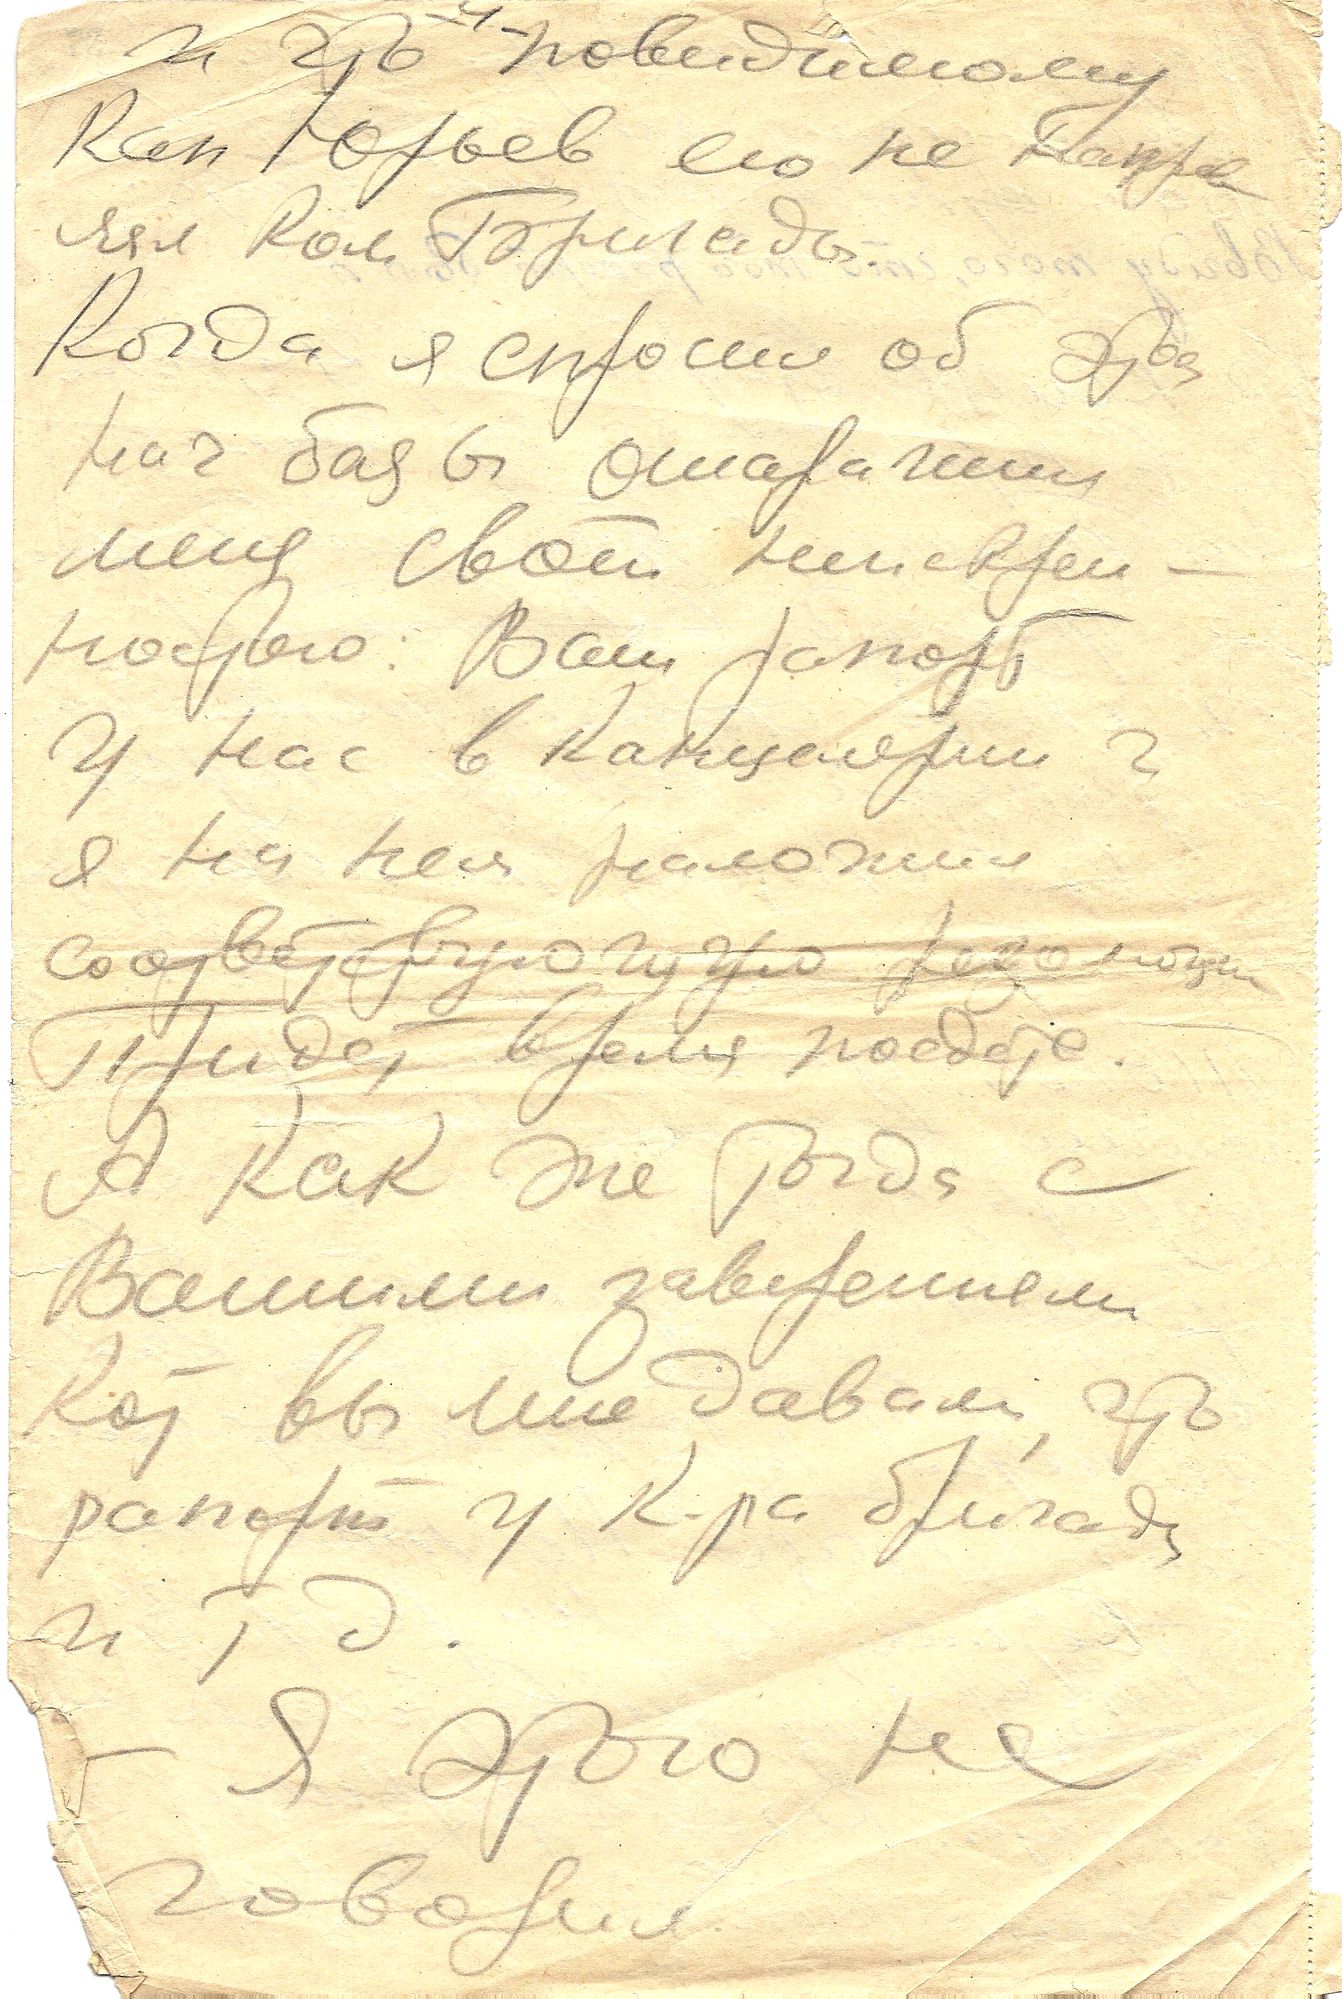 и что повидимому
Кап Юрьев его не направ
лял Ком Бригады.
Когда я спросил об этом
Нач базы ошарашил
меня своей неискрен-
ностью: Ваш рапорт
у нас в Канцелярии и
я на нем наложил
соответствующую резолюцию
Придет время поедете.
А как же тогда с
Вашими заверениями
Кот вы мне давали, что
рапорт у К-ра бригады
и т д.
- Я этого не
говорил.